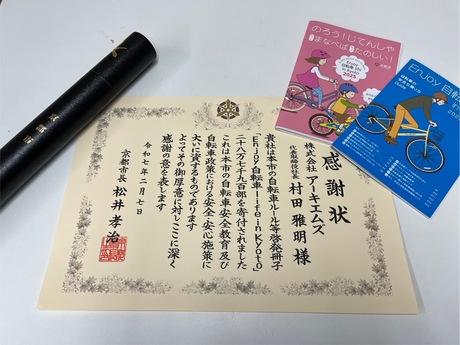 感謝状
株式会社 アーキエムズ
代表取締役社長 村田雅明様
貴社は本市の自転車ルール等啓発冊子
「Enjoy自転車life in Kyoto」
二十八万七千九百部を寄付されました
これは本市の自転車安全教育及び
自転車政策における安全・安心施策に
大いに資するものであります
よってその御厚意に対しここに深く
感謝の意を表します
令和七年二月七日
京都市長 松井孝治
のろう!じてんしゃ
まなべばたのしい!
Enjoy
自転車 life
in Kyoto
2025
Enjoy 自転